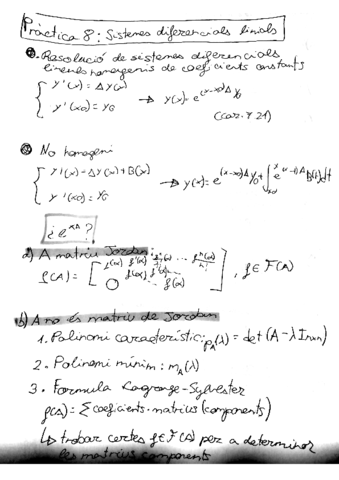 Pràctica 8: Sistemes diferencials linials
Resolució de sistemes diferencials
lineals homogenis de coeficients constants
{ Y'(x) = A Y(x)
Y'(x0) = Y0 → Y(x) = e^{(x-x0)A} Y0
No homogeni
{ Y'(x) = A Y(x) + B(x)
Y'(x0) = Y0 → Y(x) = e^{(x-x0)A} Y0 + ∫_{x0}^{x} e^{(x-t)A} B(t) dt
¿ e^{xA} ?
a) A matriu Jordan:
f(A) = [ f(λ) f'(λ) ... f(λ) ], f ∈ F(A)
b) A no és matriu de Jordan
1. Polinomi característic: p_A(λ) = det (A - λ I_{nxn})
2. Polinomi mínim: m_A(λ)
3. Formula Lagrange-Sylvester
f(A) = Σ coeficients · matrius (components)
↳ trobar certes f ∈ F(A) per a determinar
les matrius components